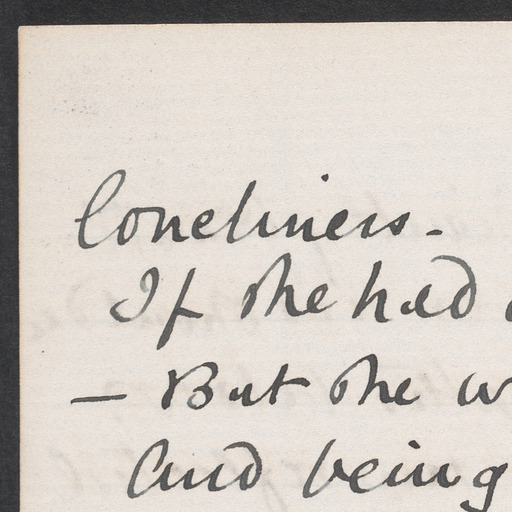 loneliness -
If she had
- But she
and being